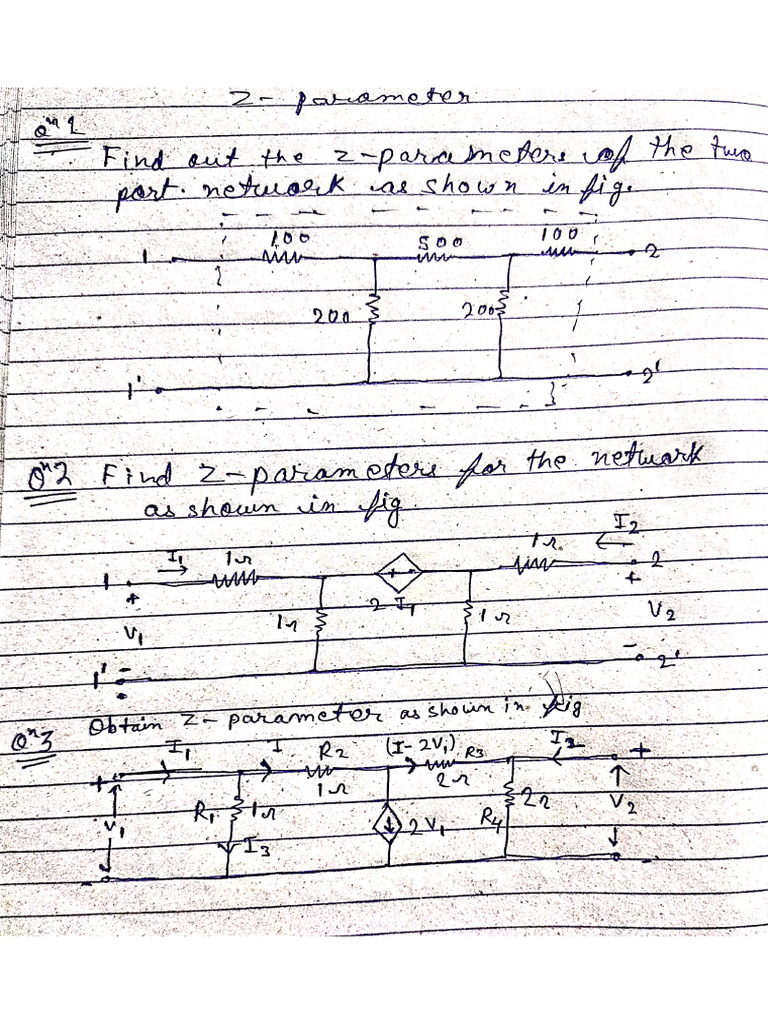 Z - parameter
Qn 1
Find out the z-parameters of the two
port. network as shown in fig.
100 500 100
1 2
200 200
1' 2'
Qn2 Find Z-parameters for the network
as shown in fig.
I1 1Ω 1Ω I2
1 + - 2
+ +
1Ω 2 I1 1Ω
V1 V2
- -
1' 2'
Qn3 Obtain Z-parameter as shown in fig
I1 I R2 (I-2V1) R3 I2
+ 1Ω 2Ω +
R1 1Ω 2Ω
V1 2V1 R4 V2
I3
- -